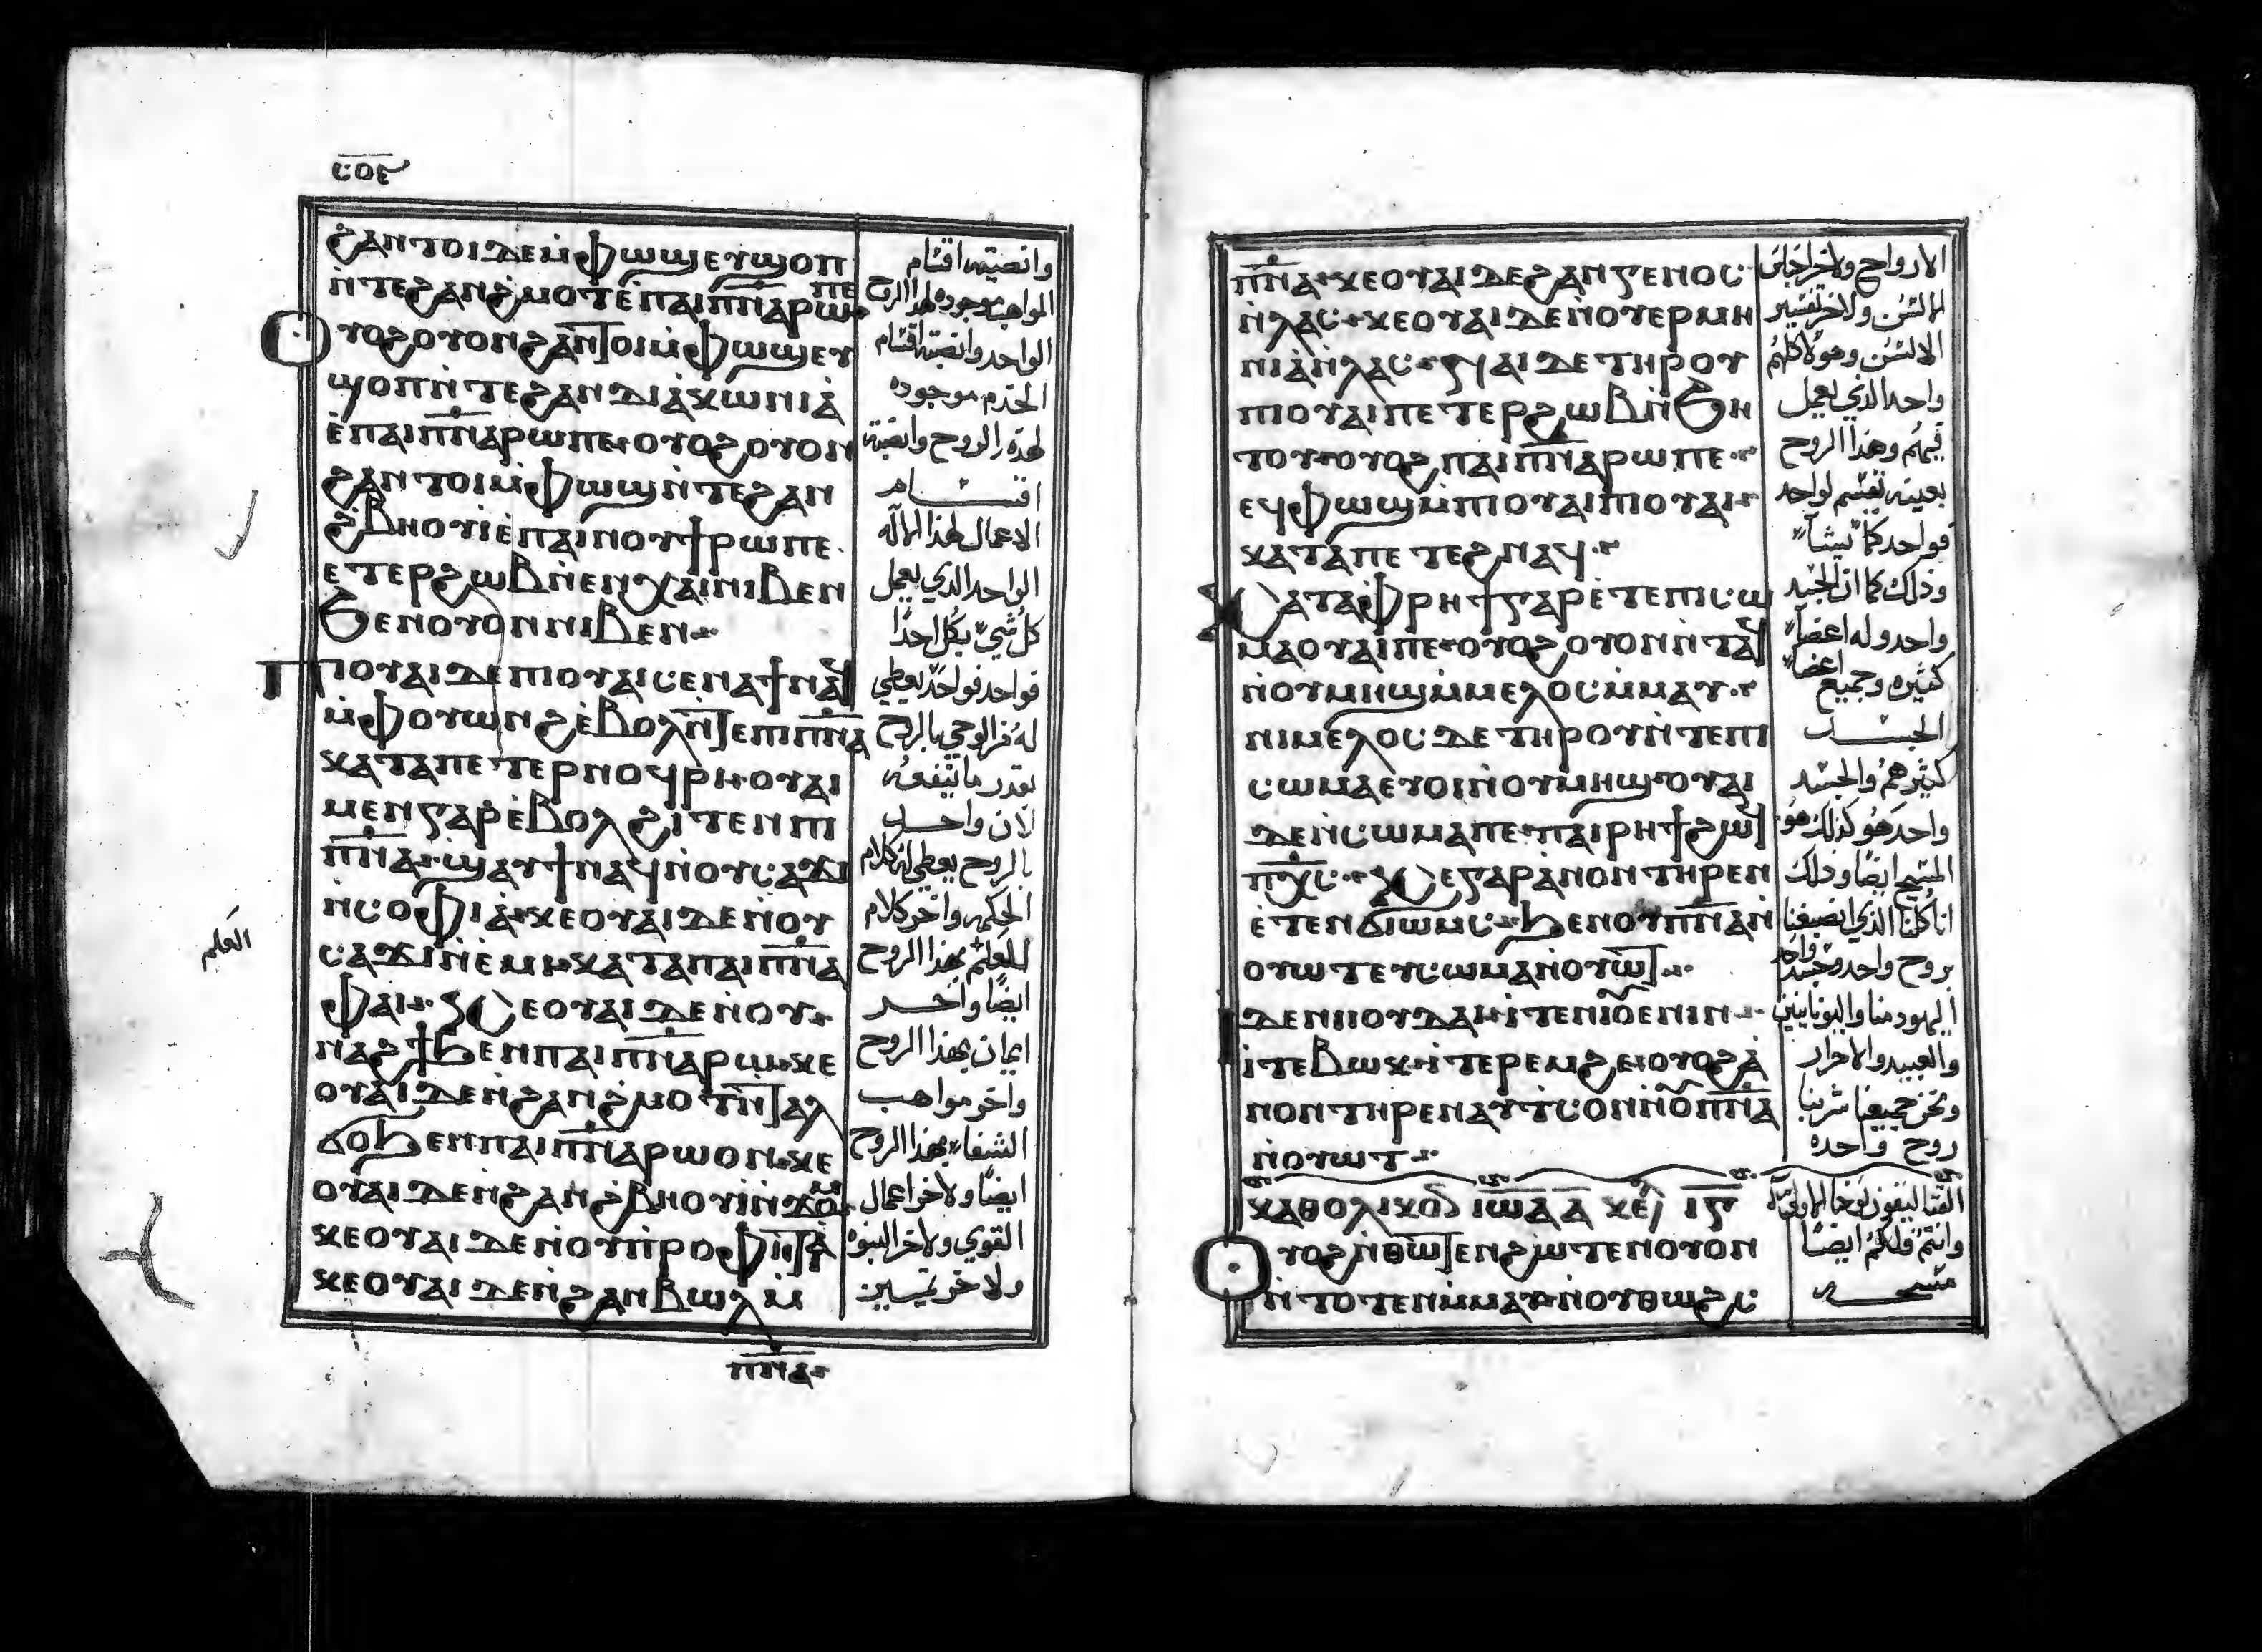 ⲥⲟⲉ
ϩⲁⲛⲧⲟⲓ ⲇⲉ ⲙ̀ⲫⲱϣ ⲉⲩϣⲟⲡ
ⲛ̀ⲧⲉ ϩⲁⲛϩ̀ⲙⲟⲧ ⲉ̀ⲡⲁⲓⲡ̅ⲛ̅ⲁ̅ ⲣⲱ ⲡⲉ
ⲟⲩⲟϩ ⲟⲩⲟⲛ ϩⲁⲛⲧⲟⲓ ⲙ̀ⲫⲱϣ ⲉⲩ
ϣⲟⲡ ⲛ̀ⲧⲉ ϩⲁⲛⲇⲓⲁ̀ⲕⲱⲛⲓⲁ̀
ⲉ̀ⲡⲁⲓⲡ̅ⲛ̅ⲁ̅ ⲣⲱ ⲡⲉ ⲟⲩⲟϩ ⲟⲩⲟⲛ
ϩⲁⲛⲧⲟⲓ ⲙ̀ⲫⲱϣ ⲛ̀ⲧⲉ ϩⲁⲛ
ϩ̀ⲃⲏⲟⲩⲓ̀ ⲉ̀ⲡⲁⲓⲛⲟⲩϯ ⲣⲱ ⲡⲉ
ⲉⲧⲉⲣϩⲱⲃ ⲛ̀ⲉⲛⲭⲁⲓ ⲛⲓⲃⲉⲛ
ϧⲉⲛ ⲟⲩⲟⲛ ⲛⲓⲃⲉⲛ
ⲡⲓⲟⲩⲁⲓ ⲇⲉ ⲡⲓⲟⲩⲁⲓ ⲥⲉⲛⲁϯ ⲛⲁϥ
ⲙ̀ⲫⲟⲩⲱⲛϩ ⲉ̀ⲃⲟⲗ ⲛ̀ⲧⲉ ⲡⲓⲡ̅ⲛ̅ⲁ̅
ⲕⲁⲧⲁ ⲡⲉⲧⲉⲣⲛⲟϥⲣⲓ ⲟⲩⲁⲓ
ⲙⲉⲛ ⲅⲁⲣ ⲉ̀ⲃⲟⲗ ϩⲓⲧⲉⲛ ⲡⲓ
ⲡ̅ⲛ̅ⲁ̅ ϣⲁⲩϯ ⲛⲁϥ ⲛ̀ⲟⲩⲥⲁϫⲓ
ⲛ̀ⲥⲟⲫⲓⲁ̀ ⲕⲉⲟⲩⲁⲓ ⲇⲉ ⲛ̀ⲟⲩ
ⲥⲁϫⲓ ⲛ̀ⲉ̀ⲙⲓ ⲕⲁⲧⲁ ⲡⲁⲓⲡ̅ⲛ̅ⲁ̅
ⲫⲁⲓ ⲕⲉⲟⲩⲁⲓ ⲇⲉ ⲛ̀ⲟⲩ
ⲛⲁϩϯ ϧⲉⲛ ⲡⲁⲓⲡ̅ⲛ̅ⲁ̅ ⲣⲱ ⲕⲉ
ⲟⲩⲁⲓ ⲇⲉ ⲛ̀ϩⲁⲛϩ̀ⲙⲟⲧ ⲛ̀ⲧⲁⲗ
ϭⲟ ϧⲉⲛ ⲡⲁⲓⲡ̅ⲛ̅ⲁ̅ ⲣⲱ ⲟⲛ ⲕⲉ
ⲟⲩⲁⲓ ⲇⲉ ⲛ̀ϩⲁⲛϩ̀ⲃⲏⲟⲩⲓ̀ ⲛ̀ϫⲟⲙ
ⲕⲉⲟⲩⲁⲓ ⲇⲉ ⲛ̀ⲟⲩⲡ̀ⲣⲟⲫⲏⲧⲓⲁ̀
ⲕⲉⲟⲩⲁⲓ ⲇⲉ ⲛ̀ϩⲁⲛⲃⲱⲗ ⲙ̀
ⲡ̅ⲛ̅ⲁ̅
وانصبة اقسام
المواهب موجوده لهذا الروح
الواحد وانصبة اقسام
الخدم موجوده
لهذه الروح وانصبة
اقسام
الاعمال لهذا الاله
الواحد الذي يعمل
كل شيء بكل احدًا
فواحد فواحد يعطي
له من الوحي بالروح
بقدر ما ينفعه
لان واحد
بالروح يعطي له كلام
الحكمه واخر كلام
للعلم بهذا الروح
ايضًا واخر
ايمان بهذا الروح
واخر مواهب
الشفاء بهذا الروح
ايضًا ولاخر اعمال
القوي ولاخر النبوه
ولاخر تمييز
العلم
ⲡ̅ⲛ̅ⲁ̅ ⲕⲉⲟⲩⲁⲓ ⲇⲉ ϩⲁⲛⲅⲉⲛⲟⲥ
ⲛ̀ⲗⲁⲥ ⲕⲉⲟⲩⲁⲓ ⲇⲉ ⲛ̀ⲟⲩⲉⲣⲙⲏ
ⲛⲓⲁ̀ ⲛ̀ⲗⲁⲥ ⲛⲁⲓ ⲇⲉ ⲧⲏⲣⲟⲩ
ⲡⲓⲟⲩⲁⲓ ⲡⲉⲧⲉⲣϩⲱⲃ ⲛ̀ϧⲏ
ⲧⲟⲩ ⲟⲩⲟϩ ⲡⲁⲓⲡ̅ⲛ̅ⲁ̅ ⲣⲱ ⲡⲉ
ⲉϥⲫⲱϣ ⲙ̀ⲡⲓⲟⲩⲁⲓ ⲡⲓⲟⲩⲁⲓ
ⲕⲁⲧⲁ ⲡⲉⲧⲉϩⲛⲁϥ
ⲕⲁⲧⲁ ⲫⲣⲏϯ ⲅⲁⲣ ⲉ̀ⲧⲉ ⲡⲓⲥⲱ
ⲙⲁ ⲟⲩⲁⲓ ⲡⲉ ⲟⲩⲟϩ ⲟⲩⲟⲛ ⲛ̀ⲧⲁϥ
ⲛ̀ⲟⲩⲙⲏϣ ⲙ̀ⲙⲉⲗⲟⲥ ⲙ̀ⲙⲁⲩ
ⲛⲓⲙⲉⲗⲟⲥ ⲇⲉ ⲧⲏⲣⲟⲩ ⲛ̀ⲧⲉ ⲡⲓ
ⲥⲱⲙⲁ ⲉⲩⲟⲓ ⲛ̀ⲟⲩⲙⲏϣ ⲟⲩⲁⲓ
ⲇⲉ ⲛ̀ⲥⲱⲙⲁ ⲡⲉ ⲡⲁⲓⲣⲏϯ ϩⲱϥ
ⲡⲭ̅ⲥ̅ ⲕⲉ ⲅⲁⲣ ⲁ̀ⲛⲟⲛ ⲧⲏⲣⲉⲛ
ⲉ̀ⲧⲉⲛϭⲓⲱⲙⲥ ϧⲉⲛ ⲟⲩⲡ̅ⲛ̅ⲁ̅ ⲛ̀
ⲟⲩⲱⲧ ⲉⲩⲥⲱⲙⲁ ⲛ̀ⲟⲩⲱⲧ
ⲇⲉ ⲛⲓⲓⲟⲩⲇⲁⲓ ⲓⲧⲉ ⲛⲓⲟⲩⲉⲓⲛⲓⲛ
ⲓⲧⲉ ⲃⲱⲕ ⲓⲧⲉ ⲣⲉⲙϩⲉ ⲟⲩⲟϩ ⲁ̀
ⲛⲟⲛ ⲧⲏⲣⲉⲛ ⲁⲩⲧⲥⲟⲛ ⲛ̀ⲟⲩⲡ̅ⲛ̅ⲁ̅
ⲛ̀ⲟⲩⲱⲧ
ⲕⲁⲑⲟⲗⲓⲕⲟⲛ ⲓⲱⲁ ⲁ̅ ⲕⲉ ⲓ̅ⲅ̅
ⲟⲩⲟϩ ⲛ̀ⲑⲱⲧⲉⲛ ϩⲱⲧⲉⲛ ⲟⲩⲟⲛ
ⲛ̀ⲧⲟⲧⲉⲛ ⲙ̀ⲙⲁⲩ ⲛ̀ⲟⲩⲑⲱϩⲥ
الارواح ولاخر اجناس
السن ولاخر تفسير
الالسن وهولا كلهم
واحد الذي يعمل
فيهم وهذا الروح
بعينه تقسم لواحد
فواحد كما يشآء
وذلك كما ان الجسد
واحد وله اعضآء
كثيره وجميع اعضآء
الجسد
كثير هم والجسد
واحد هو كذلك هو
المسيح ايضًا وذلك
انا كلنا الذي انصبغنا
بروح واحد وجسد واحد
اليهود منا واليونانيين
والعبيد والاحرار
ونحن جميعنا شربنا
روح واحده
وانتم فلكم ايضًا
مسحه